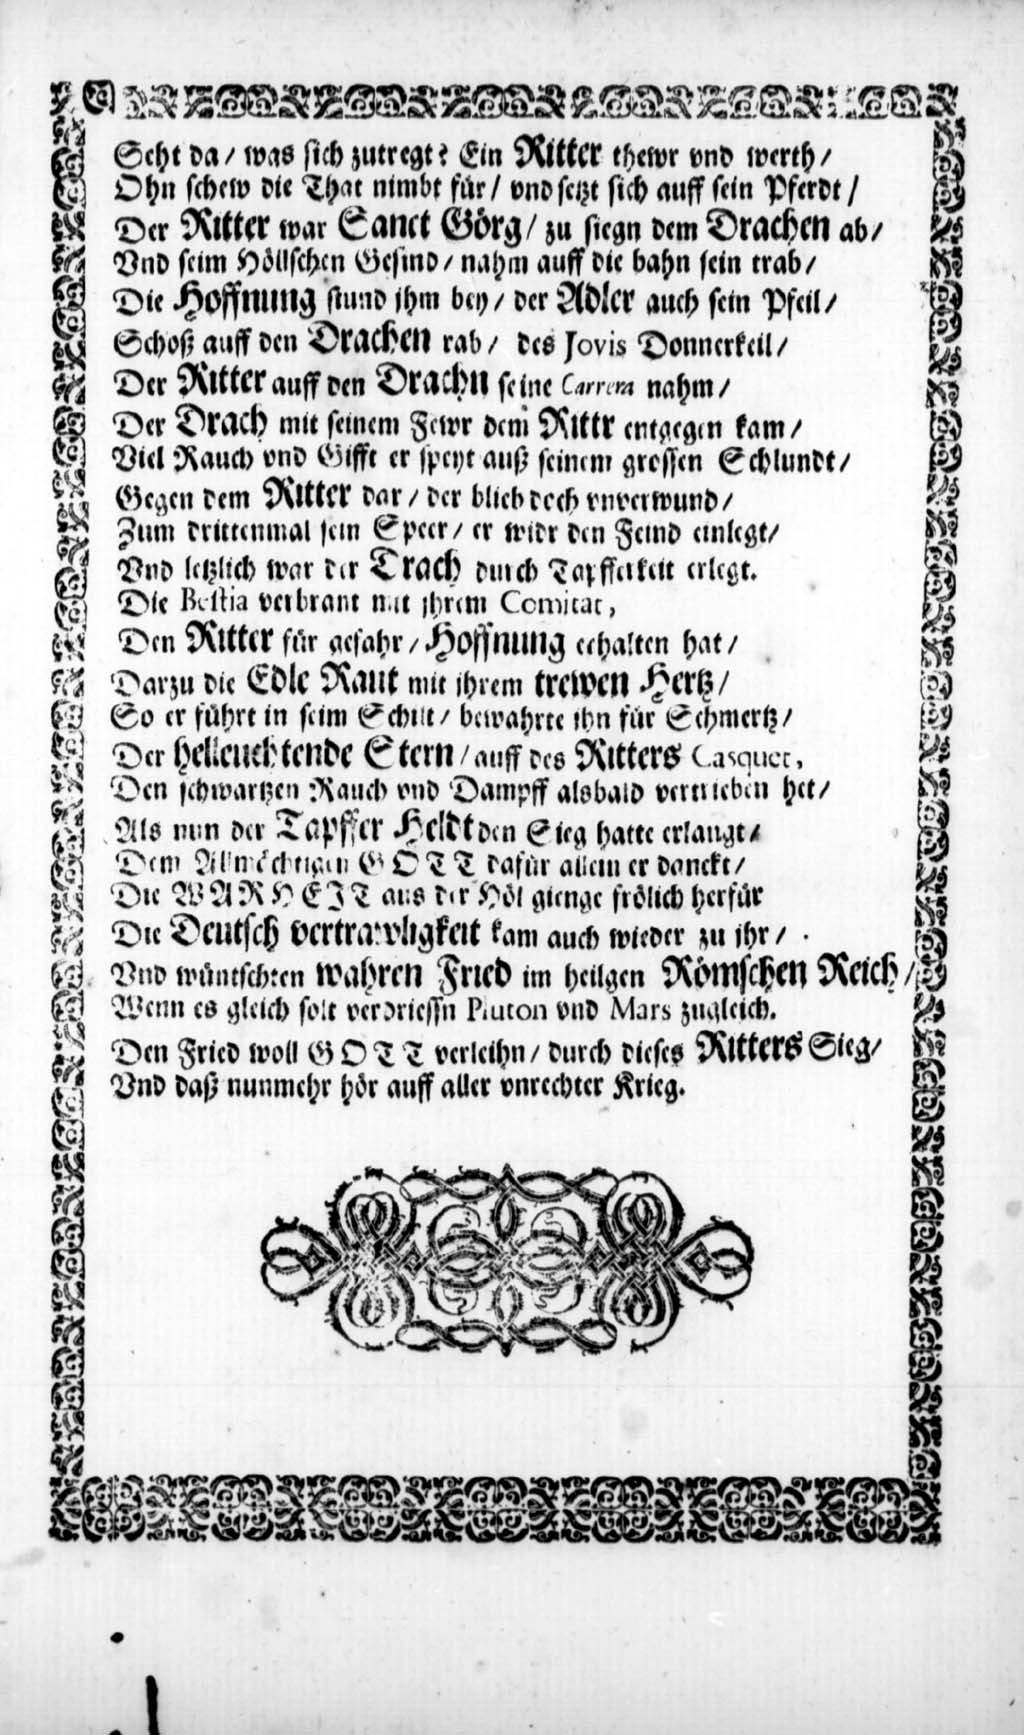 Seht da / was sich zutregt? Ein Ritter thewr vnd werth /
Ohn schew die That nimbt für / vnd setzt sich auff sein Pferdt /
Der Ritter war Sanct Görg / zu siegn dem Drachen ab /
Vnd seim Höllschen Gesind / nahm auff die bahn sein trab /
Die Hoffnung stund jhm bey / der Adler auch sein Pfeil /
Schoß auff den Drachen rab / des Jovis Donnerkeil /
Der Ritter auff den Drachn seine Carrera nahm /
Der Drach mit seinem Fewr dem Rittr entgegen kam /
Viel Rauch vnd Gifft er speyt auß seinem grossen Schlundt /
Gegen dem Ritter dar / der blieb doch vnverwund /
Zum drittenmal sein Speer / er widr den Feind einlegt /
Vnd letzlich war der Drach durch Tapfferkeit erlegt.
Die Bestia verbrant mit jhrem Comitat,
Den Ritter für gefahr / Hoffnung erhalten hat /
Darzu die Edle Raut mit jhrem trewen Hertz /
So er führt in seim Schilt / bewahrte ihn für Schmertz /
Der helleuchtende Stern / auff des Ritters Casquet,
Den schwartzen Rauch vnd Dampff alsbald vertrieben het /
Als nun der Tapffer Heldt den Sieg hatte erlangt /
Dem Allmächtigen GOTT dafür allein er danckt /
Die WARHEIT aus der Höl gienge frölich herfür
Die Deutsch vertrawligkeit kam auch wieder zu jhr /
Vnd wüntschten wahren Fried im heilgen Römschen Reich /
Wenn es gleich solt verdriessn Pluton vnd Mars zugleich.
Den Fried woll GOTT verleihn / durch dieses Ritters Sieg /
Vnd daß nunmehr hör auff aller vnrechter Krieg.